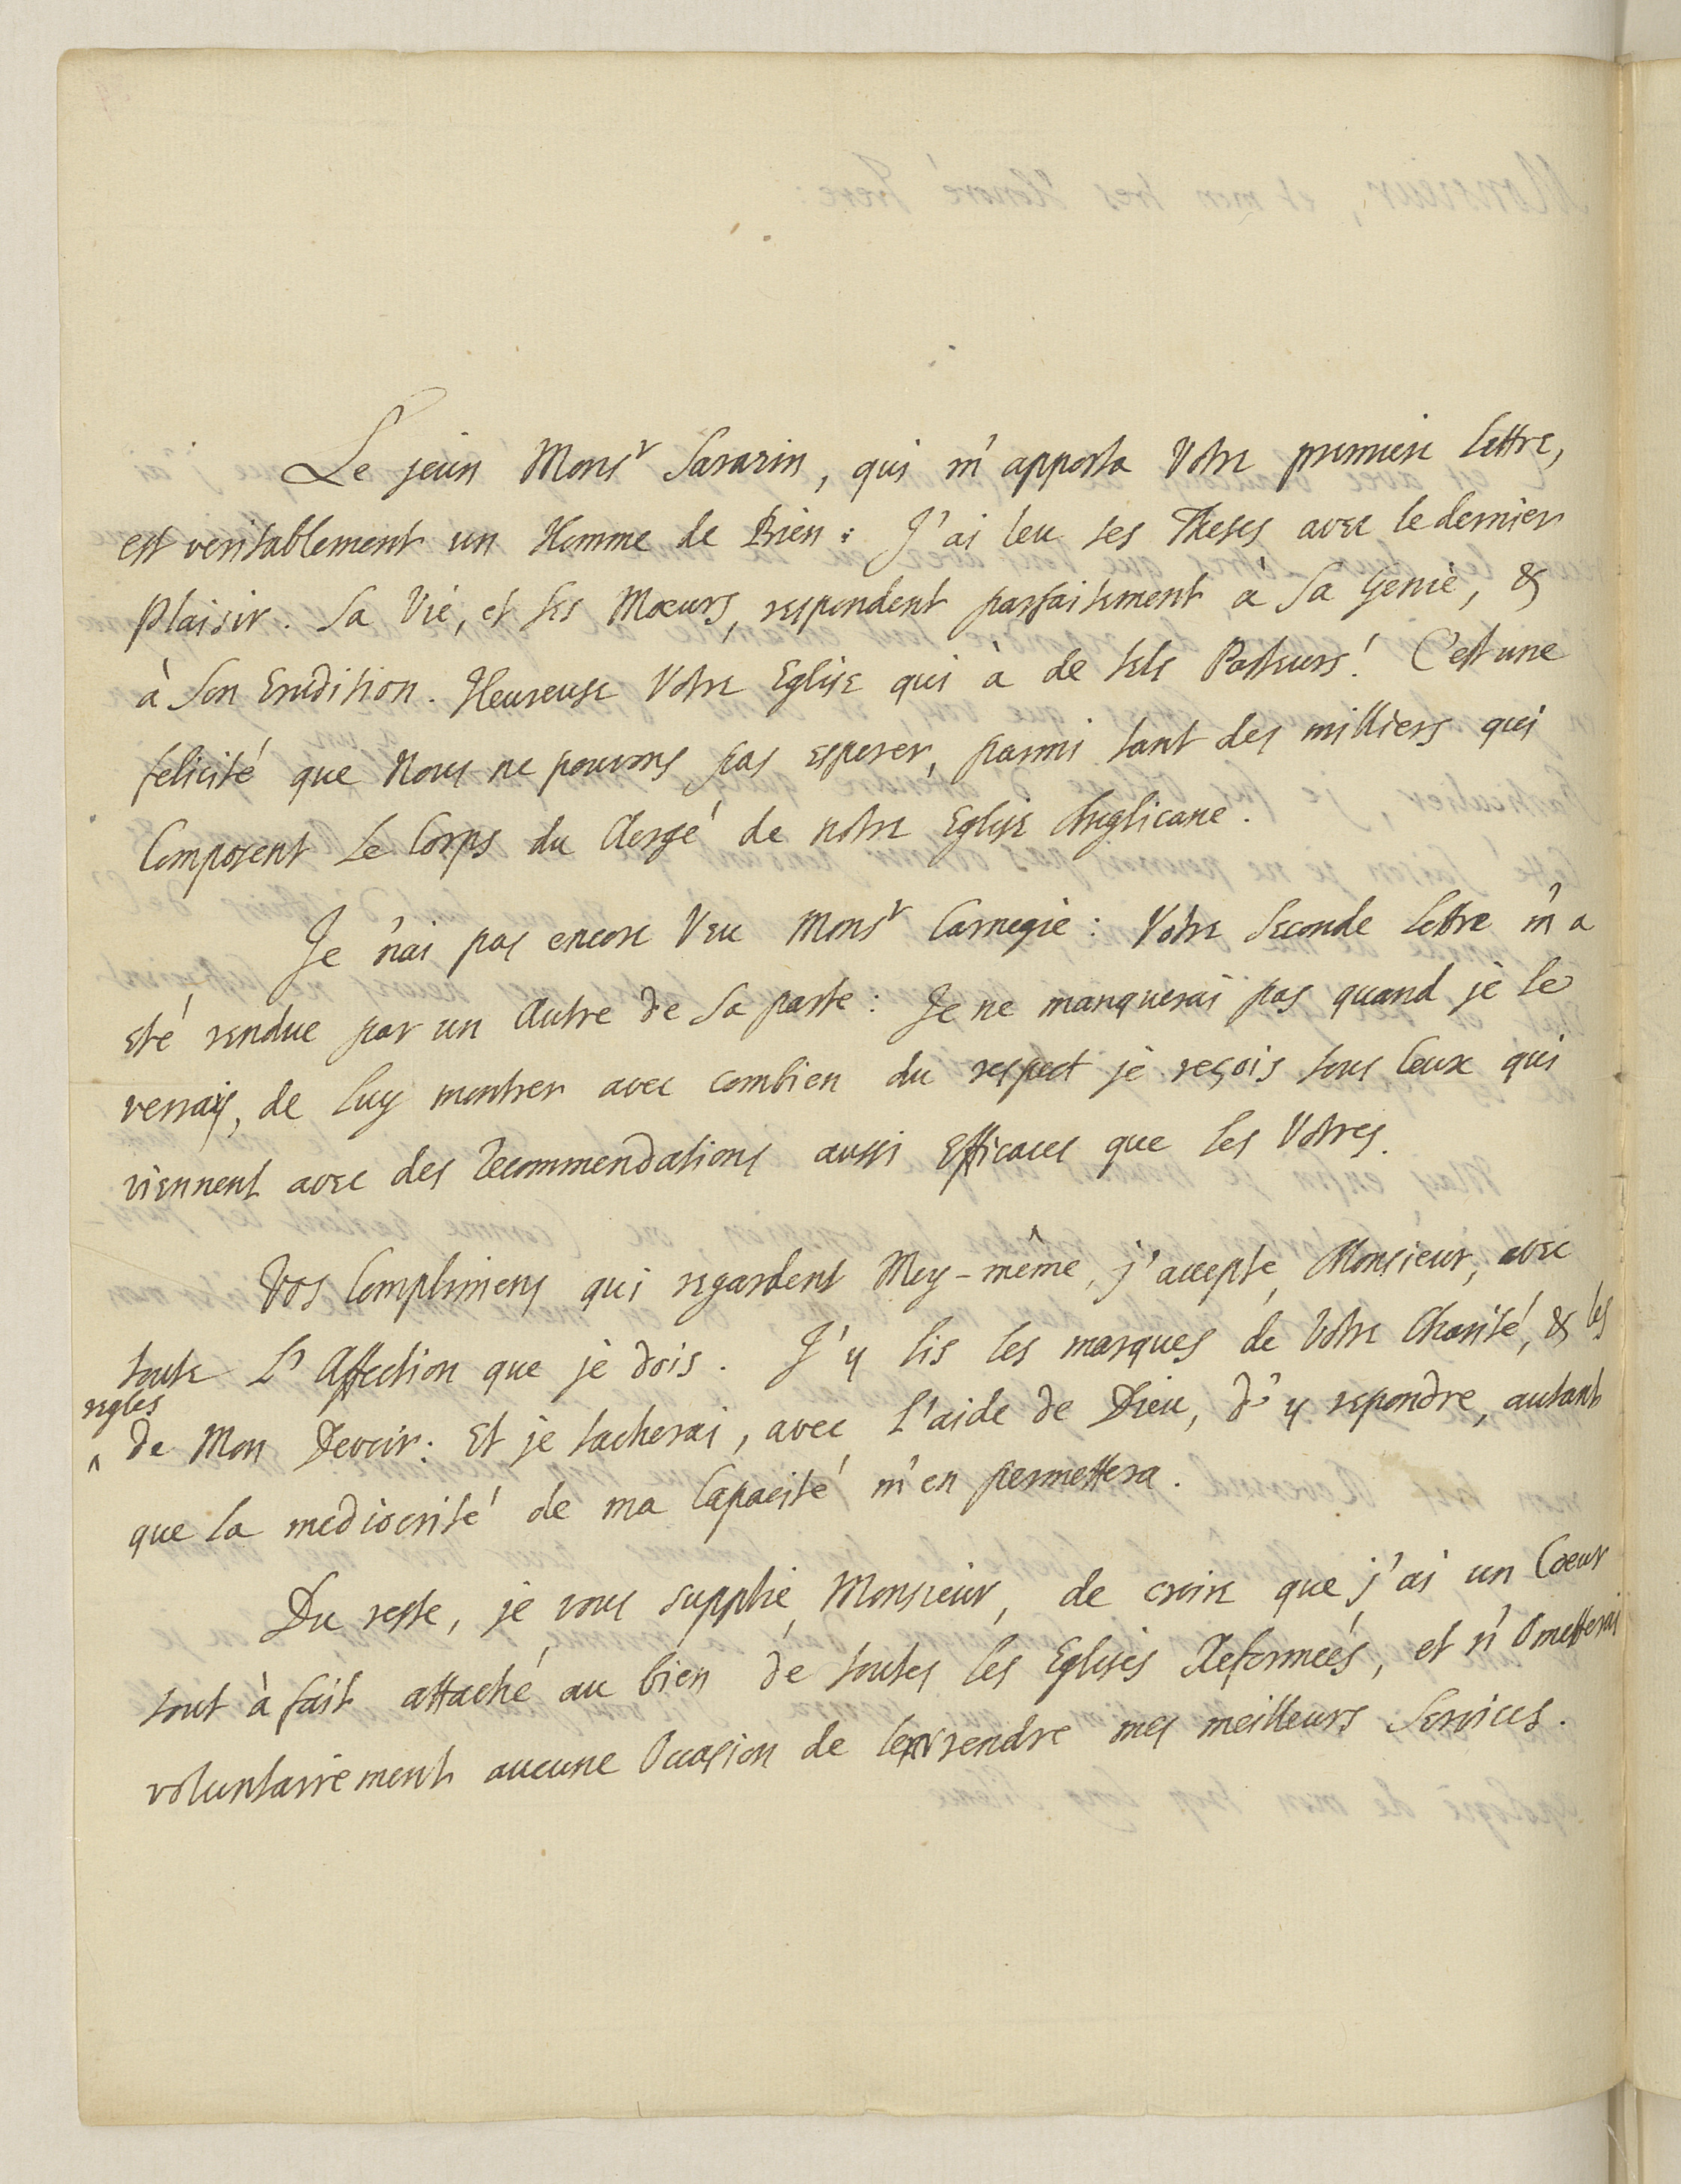 Le jeun Monsr Sararin, qui m'apporta Votre premiere Lettre,
est veritablement un Homme de Bien: J'ai leu ses Theses avec le dernier
plaisir. Sa Vie, et ses Mœurs, respondent parfaitement à Sa Genie, &
à Son Erudition. Heureuse Votre Eglise qui à de tels Pasteurs! C'est une
felicité que Nous ne pouvons pas esperer, parmi tant des milliers qui
Composent Le Corps du Clergé de notre Eglise Anglicane.
Je n'ai pas encore Veu Monsr Carnegie: Votre Seconde Lettre m'a
eté rendue par un Autre de Sa parte: Je ne manquerai pas quand je le
verray, de Luy montrer avec combien du respect je reçois tous Ceux qui
viennent avec des Recommendations aussi Efficaces que les Votres.
Vos Complimens qui regardent Moy-même, j'accepte, Monsieur, avec
toute L'Affection que je dois. J'y lis les marques de Votre Charité, & les
regles
^ de Mon Devoir: Et je tacherai, avec L'aide de Dieu, d'y repondre, autant
que la mediocrité de ma Capacité m'en permettera.
Du reste, je vous supplie, Monsieur, de croire que j'ai un Cœur
tout à fait attaché au bien de toutes les Eglises Reformeés, et n'Ometterai
voluntairement aucune Occasion de leur rendre mes meilleurs Services.